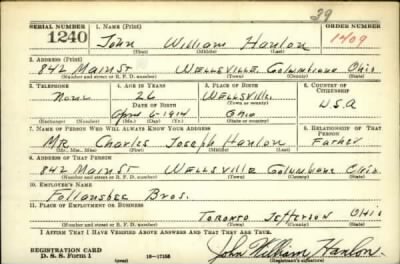 39
SERIAL NUMBER 1. NAME (Print) ORDER NUMBER
1240 John William Hanlon 1409
(First) (Middle) (Last)
2. ADDRESS (Print)
842 Main St Wellsville Columbiana Ohio
(Number and street or R. F. D. number) (Town) (County) (State)
3. TELEPHONE 4. AGE IN YEARS 5. PLACE OF BIRTH 6. COUNTRY OF CITIZENSHIP
None 26 Wellsville
DATE OF BIRTH (Town or county)
April 6-1914 Ohio U.S.A
(Exchange) (Number) (Mo.) (Day) (Yr.) (State or country)
7. NAME OF PERSON WHO WILL ALWAYS KNOW YOUR ADDRESS 8. RELATIONSHIP OF THAT PERSON
Mr. Charles Joseph Hanlon Father
(Mr., Mrs., Miss) (First) (Middle) (Last)
9. ADDRESS OF THAT PERSON
842 Main St Wellsville Columbiana Ohio
(Number and street or R. F. D. number) (Town) (County) (State)
10. EMPLOYER'S NAME
Follansbee Bros.
11. PLACE OF EMPLOYMENT OR BUSINESS
Toronto Jefferson Ohio
(Number and street or R. F. D. number) (Town) (County) (State)
I AFFIRM THAT I HAVE VERIFIED ABOVE ANSWERS AND THAT THEY ARE TRUE.
REGISTRATION CARD
D. S. S. Form 1 16—17105 John William Hanlon
(Registrant's signature)